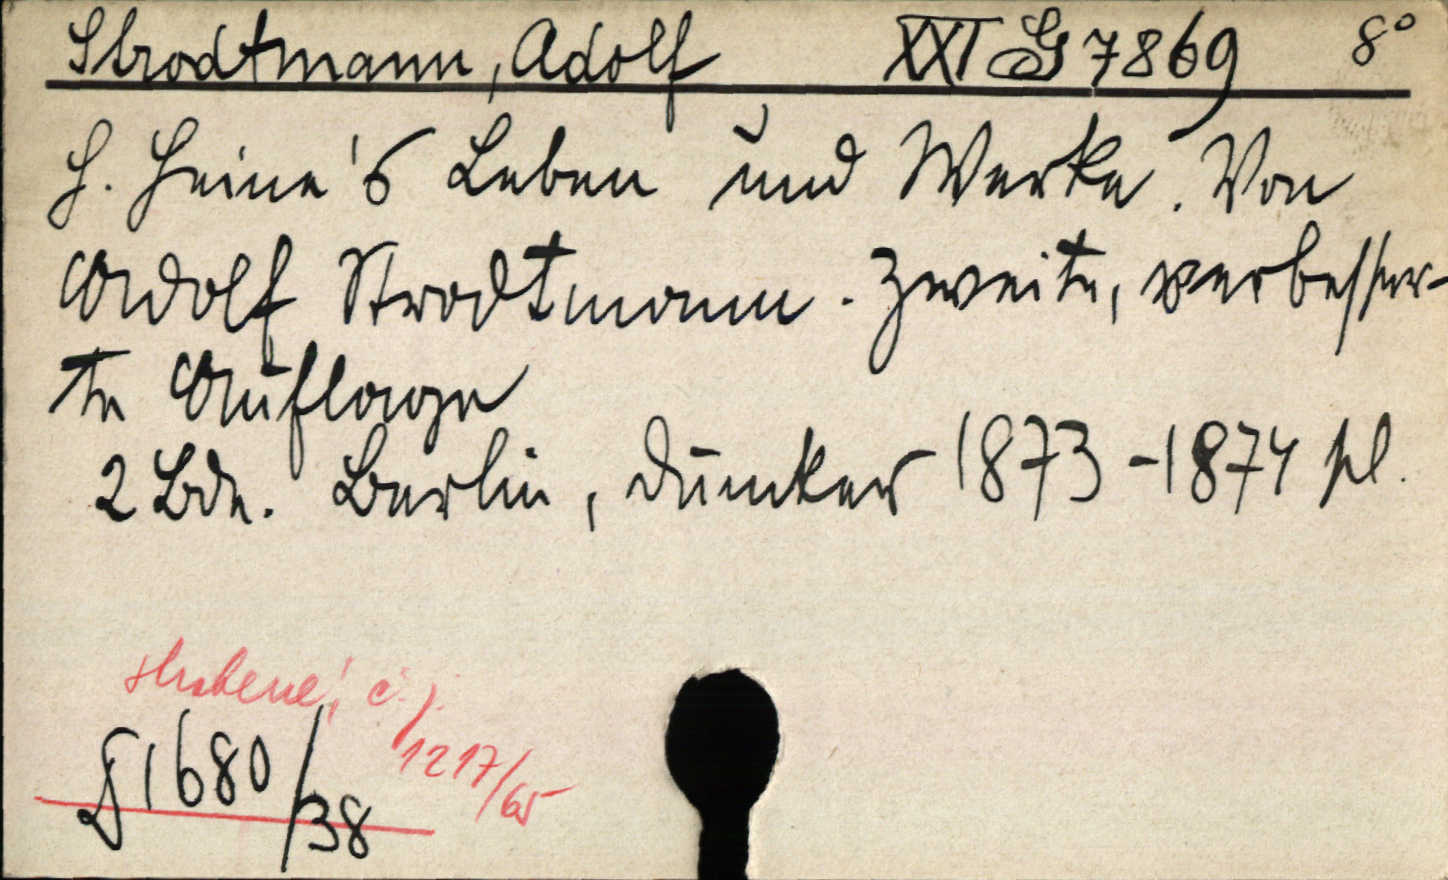 Strodtmann, Adolf XXI G 7869 8°
H. Heine's Leben und Werke. Von
Adolf Strodtmann. Zweite, verbesser-
te Auflage
2 Bde. Berlin, Duncker 1873-1874 pl.
ztrabené, č. j.
1217/65
§ 1680/38